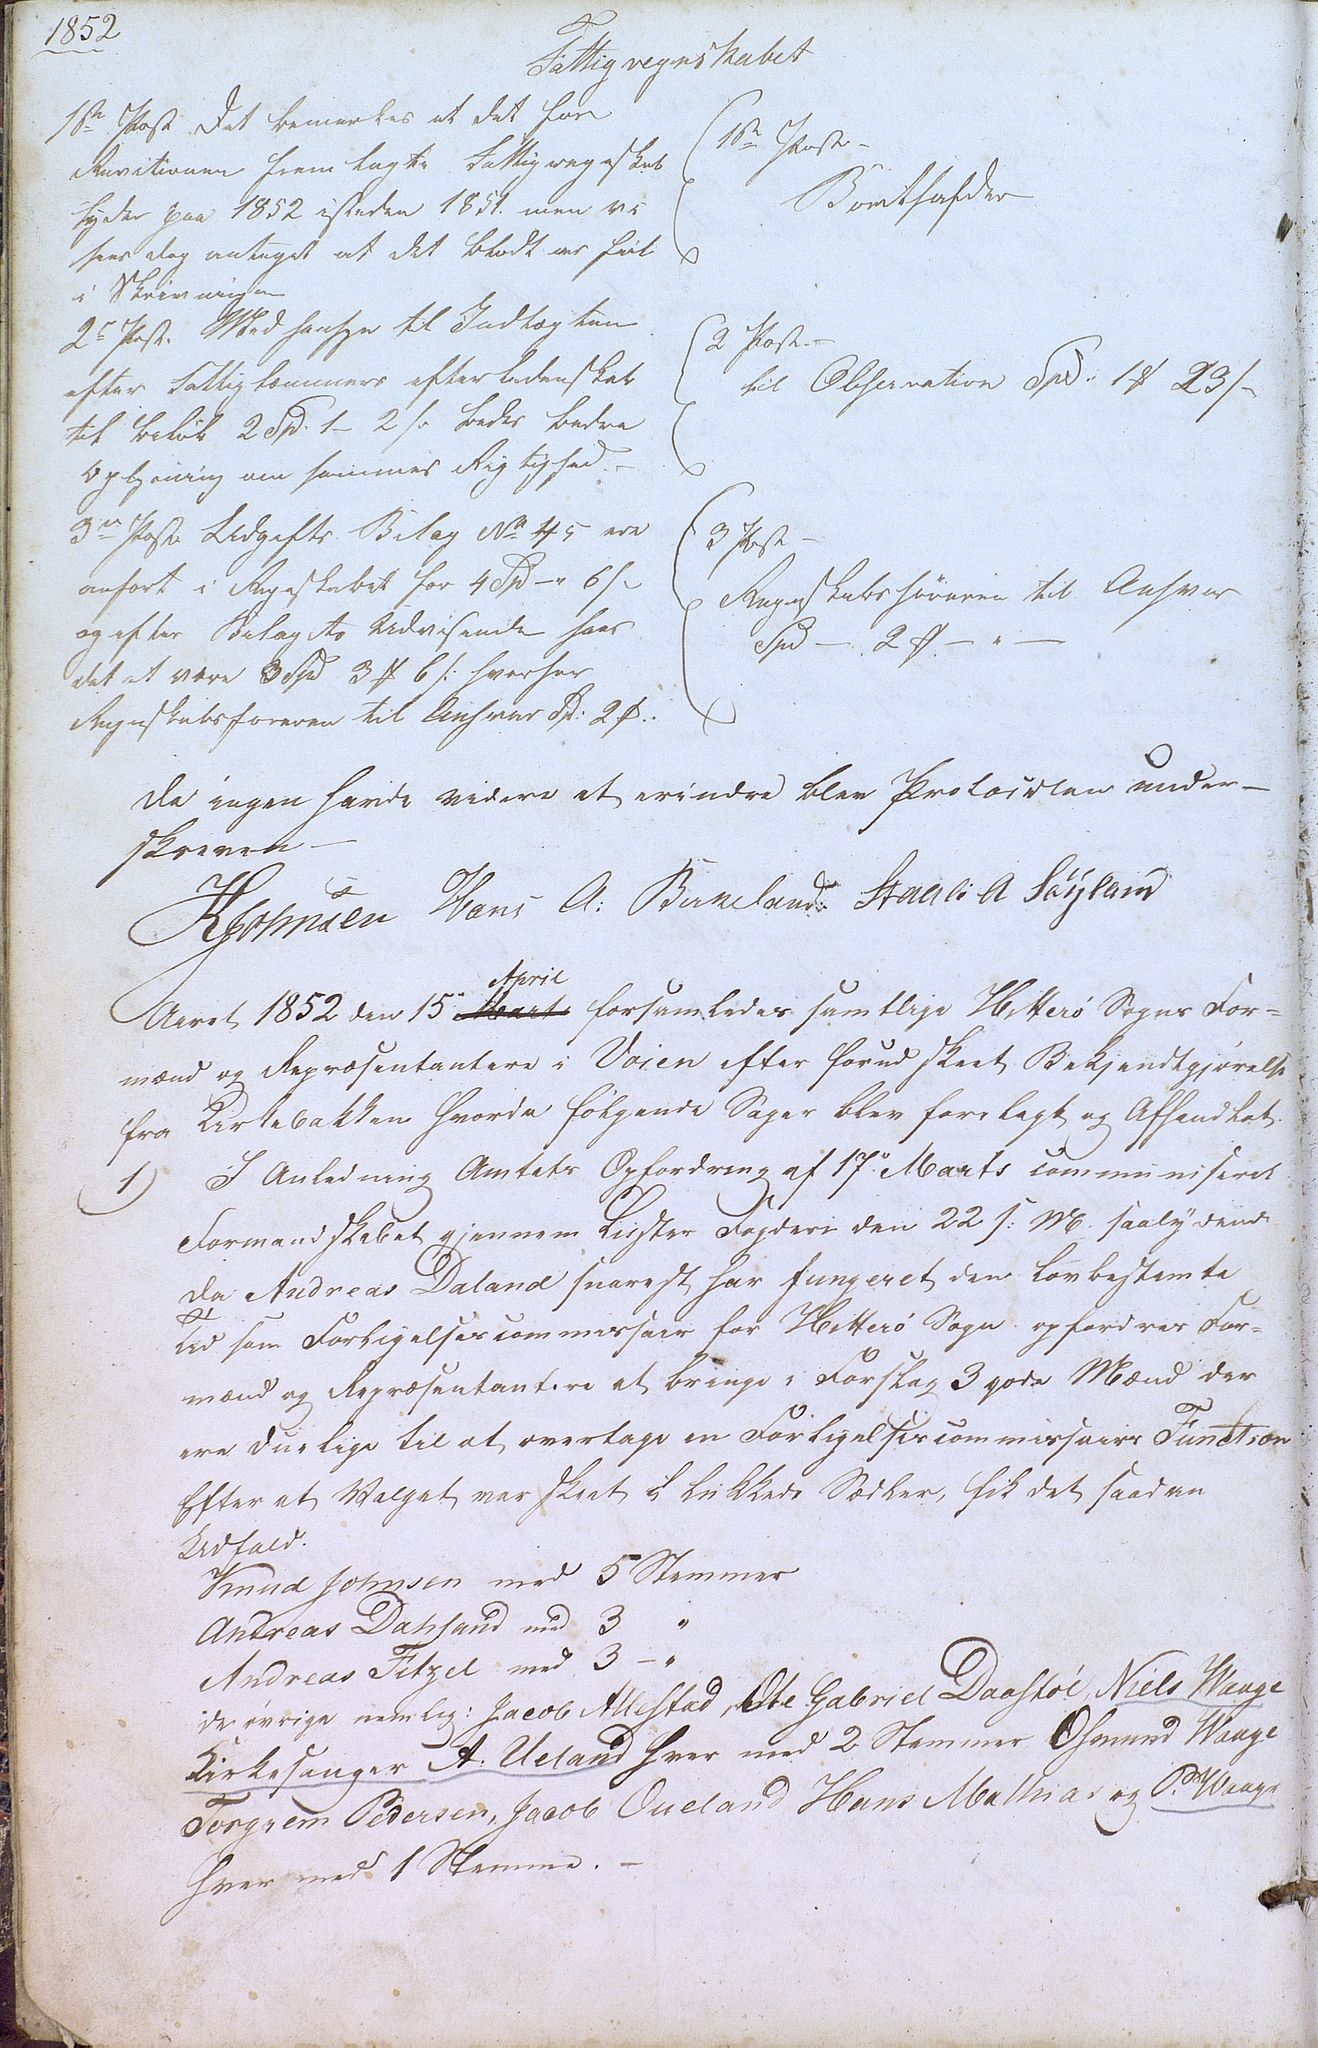 1852
Fattigregnskabet
1ste Post Det bemærkes at det for
Revitionen fremlagte Fattigregnskab
lyder paa 1852 isteden 1851. men vi
have dog antaget at det blodt er feil
i Skrivningen
1ste Post –
Bortfalder
2e Post. Med hensyn til Indtægten
efter Fattiglemmers efterladenskab
til beløb 2 Spd. 1 – 2 s. bedes bedre
Oplysning om sammes Rigtighed. –
2 Post. –
til Observation Spd. 1 # 23 s –
3die Post Udgifts Bilag No 45 ere
anført i Regnskabet for 4 Spd – " 6 s.
og efter Bilagets Udvisende haver
det at være 3 Spd 3 # 6 s. hvorfor
Regnskabsføreren til Ansvar Spd: 2 #..
3 Post –
Regnskabsføreren til Ansvar
Spd – 2 # – " –
da ingen havde videre at erindre blev Protocolen under-
skreven –
K Johnsen Hans A: Birkeland Staali A Søyland
April
Aaret 1852 den 15de Marts forsamledes samtlige Hitterø Sogns For=
mænd og Repræsentantere i Voien efter forud skeet Bekjendtgjørelse
fra Kirkebakken hvorda følgende Sager blev forelagt og Afhandlet.
1) I Anledning Amtets Opfordring af 17de Marts communiseret
Formandskabet gjennem Lister Fogderi den 22 s: M. saalydende
da Andreas Daland snarest har fungeret den lovbestemte
Tid som Forligelsescommissair for Hitterø Sogn opfordres For=
mænd og Repræsentantere at bringe i Forslag 3 gode Mænd der
ere duelige til at overtage en Forligelsescommissairs Function
Efter at Valget var skeet i lukkede Sedler, fik det saadan
Udfald.
Knud Johnsen med 5 Stemmer
Andreas Dahland med 3 "
Andreas Fitzel med 3 – "
de øvrige nemlig: Jacob Allestad, Ole Gabriel Daastøl, Niels Waage
Kirkesanger A. Ueland hver med 2 Stemmer Osmund Waage
Torgrem Pedersen, Jacob Oueland Hans og P. Waage
hver med 1 Stemme. –